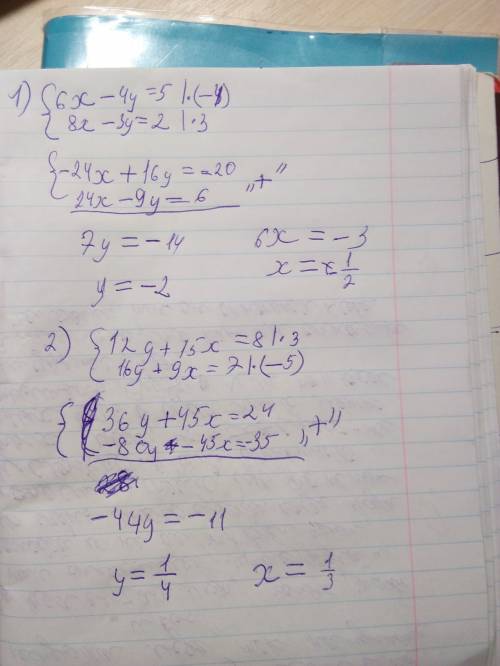 1) { 6x - 4y = 5 |·(-4)
8x - 3y = 2 |·3
{ -24x + 16y = -20
24x - 9y = 6 „+”
7y = -14 6x = -3
y = -2 x = -1/2
2) { 12y + 15x = 8 |·3
16y + 9x = 7 |·(-5)
{ 36y + 45x = 24
-80y - 45x = -35 „+”
-44y = -11
y = 1/4 x = 1/3